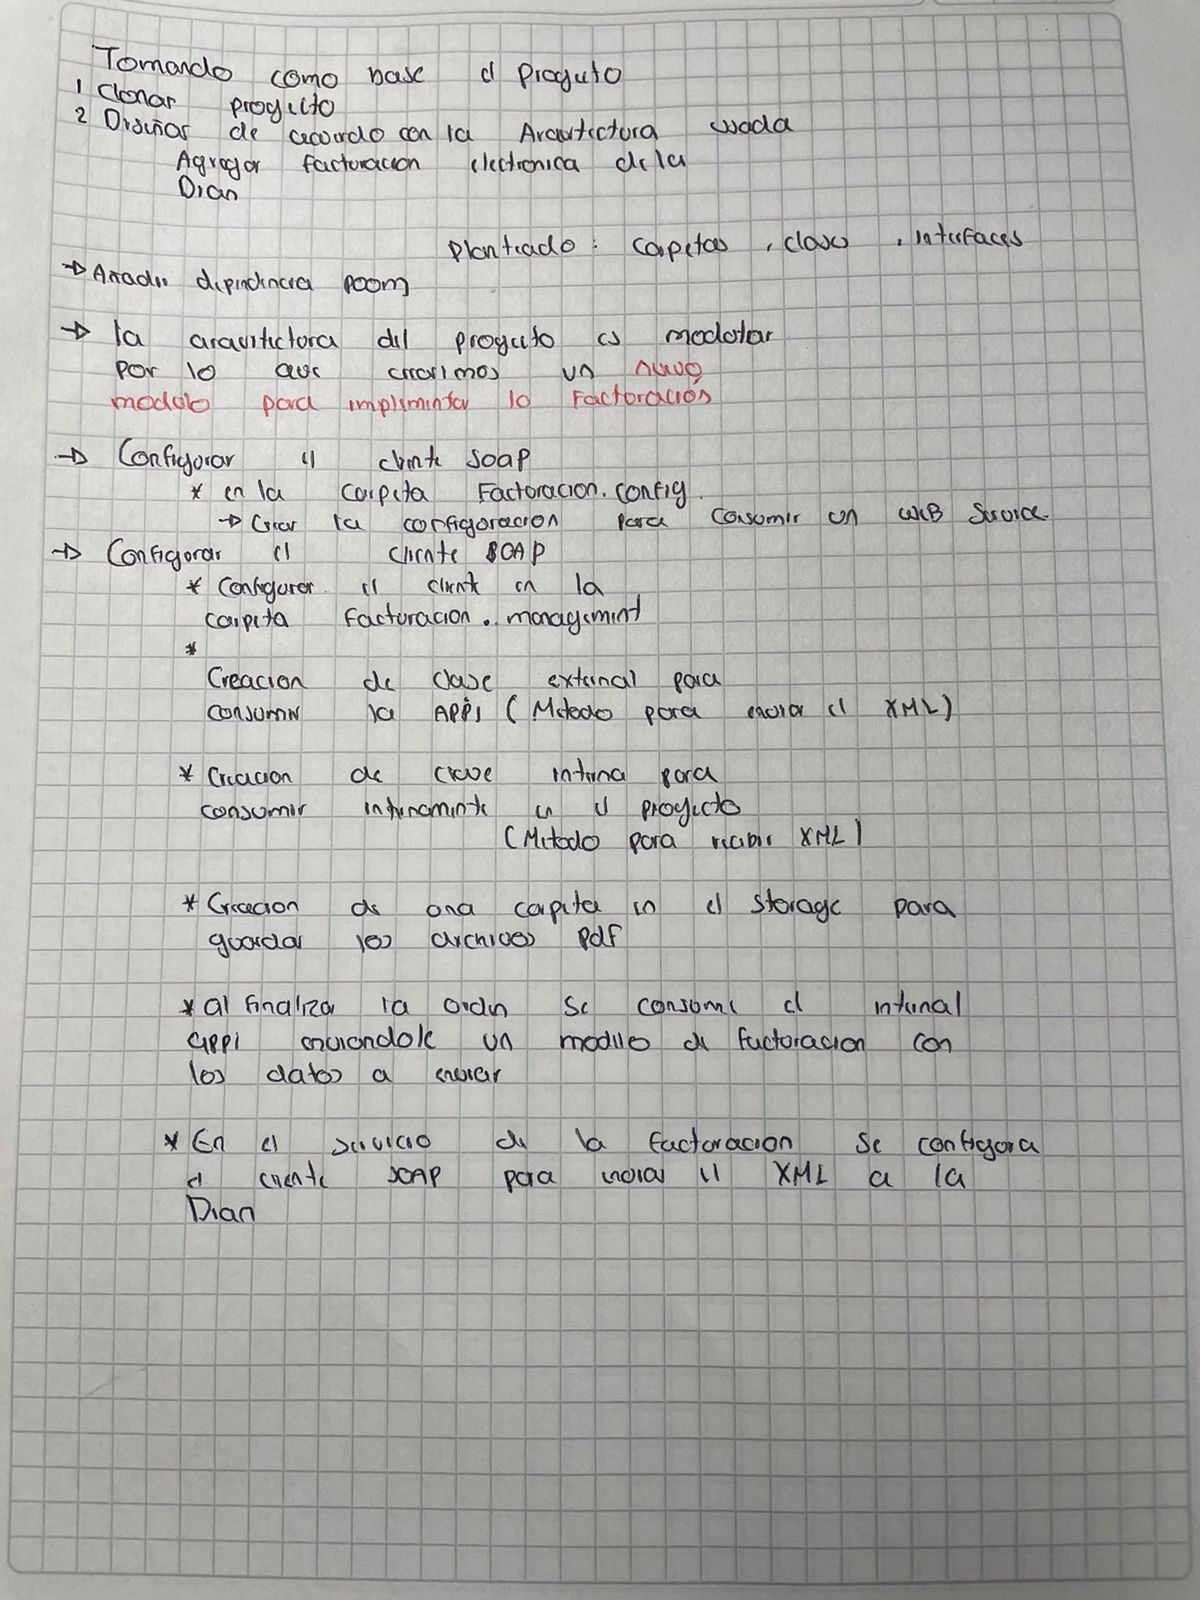 Tomando como base el Proyecto
1 Clonar proyecto
2 Diseñar de acuerdo con la Arquitectura usada
Agregar facturacion electronica de la
Dian
Planteado: carpetas, clases, interfaces
→ Añadir dependencia poom
→ la arquitectura del proyecto es modular
por lo que crearimos un nuevo
modulo para implimentar la Facturación
→ Configurar el cliente soap
* en la carpeta Facturacion.config.
→ Crear la configuracion para consumir un WEB Service
→ Configurar el cliente SOAP
* Configurar el client en la
carpeta facturacion.management
*
Creacion de clase external para
consumir la APPi (Metodo para enviar el XML)
* Creacion de clase interna para
consumir internamente en el proyecto
(Metodo para recibir XML)
* Creacion de una carpeta en el storage para
guardar los archivos pdf
* al finalizar la orden se consume el internal
appi enviandole un modelo de facturacion con
los datos a enviar
* En el servicio de la facturacion se configura
el cliente SOAP para enviar el XML a la
Dian